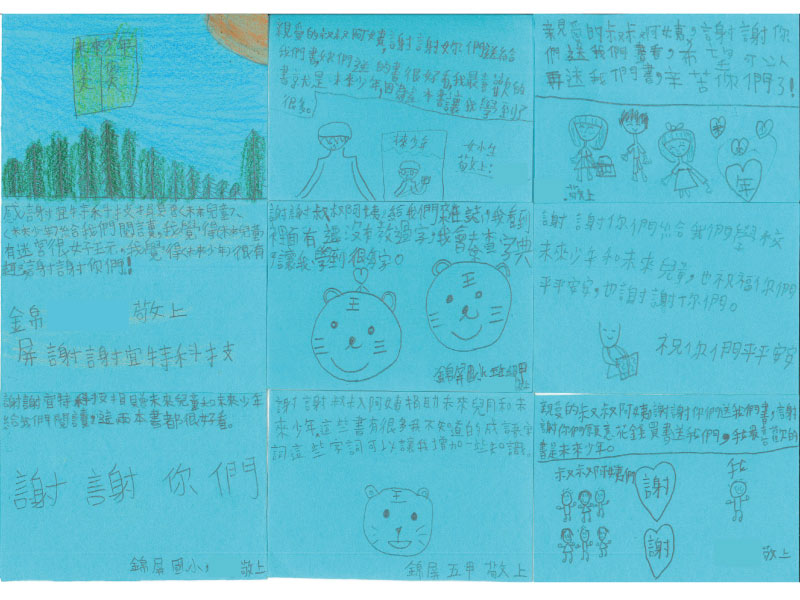 未來少年
親愛的叔叔阿姨,謝謝妳你們送給
我們書,你們送的書很好看,我最喜歡的
書就是未來少年,因為這本書讓我學到了
很多。
未來少年
敬上!
親愛的叔叔阿姨,謝謝你
們送我們書看,希望可以
再送我們書,辛苦你們了!
敬上
年
感謝宜特科技捐贈《未來兒童》、
《未來少年》給我們閱讀,我覺得《未來兒童》
有迷宮很好玩,我覺得《未來少年》很有
趣,謝謝你們!
錦帛
敬上
屏謝謝宜特科技
謝謝叔叔阿姨,給我們來雜誌,我看到
裡面有些沒有教過字,我會去查字典
,讓我學到很多字。
王
王
謝謝你們給我們學校
未來少年和未來兒童,也祝福你們
平平安安,也謝謝你們。
祝你們平平安安
謝謝宜特科技捐贈未來兒童和未來少年
給我們閱讀,這兩本書都很好看。
謝謝你們
錦屏國小,
敬上
謝謝叔叔阿姨捐助未來兒童和未
來少年,這些書有很多我不知道的成語字
詞,這些字詞可以讓我增加一些知識。
王
錦屏五甲 敬上
親愛的叔叔阿姨謝謝你們送我們書,謝
謝你們願意花錢買書送我們,我最喜歡的
書是未來少年。
叔叔阿姨們
謝
我
謝
敬上